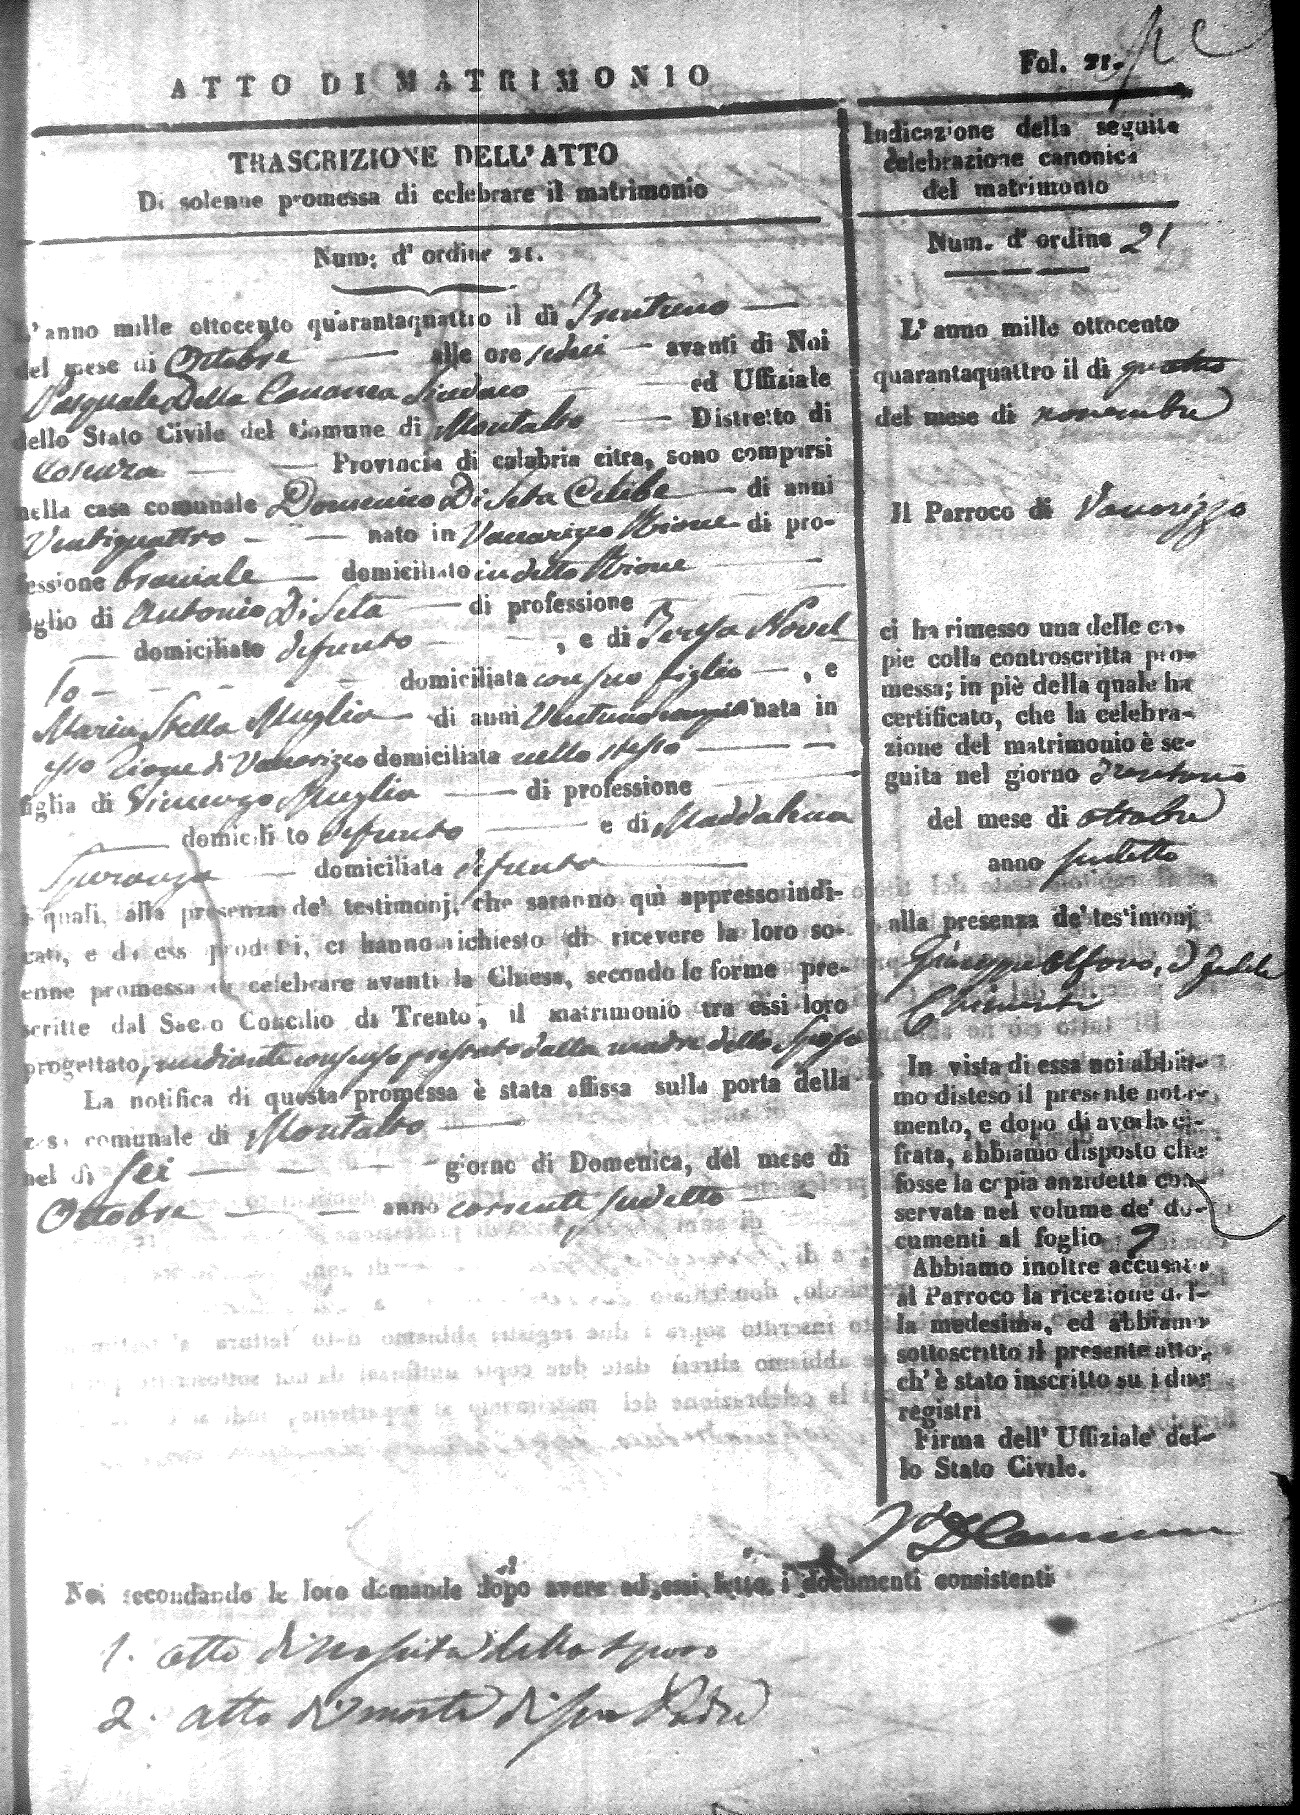 ATTO DI MATRIMONIO
Fol. 21.
TRASCRIZIONE DELL'ATTO
Di solenne promessa di celebrare il matrimonio
Num: d' ordine 21.
L'anno mille ottocento quarantaquattro il dì Trentuno
del mese di Ottobre alle ore sedici avanti di Noi
Pasquale Della Sindaco ed Uffiziale
dello Stato Civile del Comune di Montalto Distretto di
Cosenza Provincia di calabria citra, sono comparsi
nella casa comunale Domenico Di Seta Celibe di anni
Ventiquattro nato in Vaccarizzo Rione di pro-
fessione bracciale domiciliato in detto Rione
figlio di Antonio Di Seta di professione
domiciliato defunto , e di Teresa Novel
lo domiciliata con suo figlio , e
Maria Stella Muglia di anni Ventuno nata in
esso Rione di Vaccarizzo domiciliata nello stesso
figlia di Vincenzo Muglia di professione
domicili to defunto e di Maddalena
Speranza domiciliata defunta
i quali, alla presenza de' testimonj, che saranno quì appresso indi-
cati, e da essi prodotti, ci hanno richiesto di ricevere la loro so-
lenne promessa di celebrare avanti la Chiesa, secondo le forme pre-
scritte dal Sacro Concilio di Trento, il matrimonio tra essi loro
progettato, mediante consenso prestato dalla madre dello Sposo
La notifica di questa promessa è stata affissa sulla porta della
casa comunale di Montalto
nel dì sei giorno di Domenica, del mese di
Ottobre anno corrente sudetto
Indicazione della seguita
celebrazione canonica
del matrimonio
Num. d' ordine 21
L' anno mille ottocento
quarantaquattro il di quattro
del mese di novembre
Il Parroco di Vaccarizzo
ci ha rimesso una delle co-
pie colla controscritta pro-
messa; in piè della quale ha
certificato, che la celebra-
zione del matrimonio è se-
guita nel giorno trentuno
del mese di ottobre
anno sudetto
alla presenza de' testimonj
Giuseppe
In vista di essa noi abbia-
mo disteso il presente nota-
mento, e dopo di averla ci-
frata, abbiamo disposto che
fosse la copia anzidetta con-
servata nel volume de' do-
cumenti al foglio 9
Abbiamo inoltre accusato
al Parroco la ricezione del-
la medesima, ed abbiamo
sottoscritto il presente atto,
ch' è stato inscritto su i due
registri
Firma dell' Uffiziale del-
lo Stato Civile.
Noi secondando le loro domande dopo avere ad essi letto i documenti consistenti
1. atto di nascita dello sposo
2. atto di morte di suo Padre